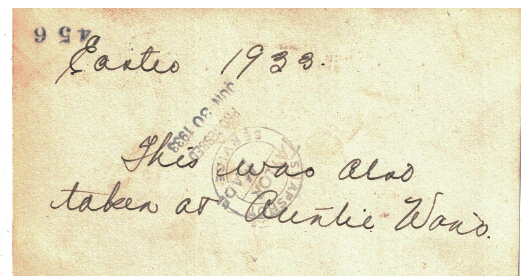 456
Easter 1933.
JUN 30 1933
PROCESSED
This was also
SERVICE
taken at Auntie Wons.